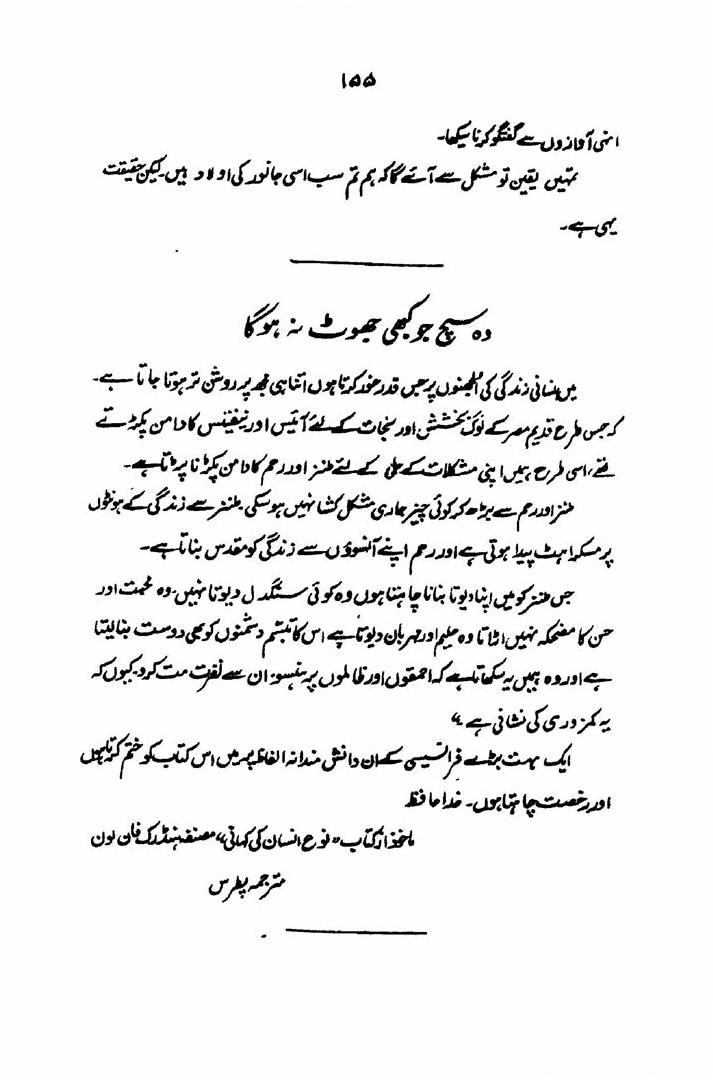 ۱۵۵
انہی آوازوں سے گفتگو کرنا سیکھا۔
تمہیں یقین تو مشکل سے آئے گا کہ ہم تم سب اسی جانور کی اولاد ہیں۔ لیکن حقیقت
یہی ہے۔
وہ سچ جو کبھی جھوٹ نہ ہوگا
میں انسانی زندگی کی الجھنوں پر جس قدر غور کرتا ہوں اتنا ہی مجھ پر روشن تر ہوتا جاتا ہے۔
کہ جس طرح قدیم مصر کے لوگ بخشش اور نجات کے لئے آئیس اور نیفینس کا دامن پکڑتے
تھے، اسی طرح ہمیں اپنی مشکلات کے حل کے لئے طنز اور رحم کا دامن پکڑنا پڑتا ہے۔
طنز اور رحم سے بڑھ کر کوئی چیز ہماری مشکل کشا نہیں ہو سکی۔ طنز سے زندگی کے ہونٹوں
پر مسکراہٹ پیدا ہوتی ہے اور رحم اپنے آنسوؤں سے زندگی کو مقدس بناتا ہے۔
جس طنز کو میں اپنا دیوتا بنانا چاہتا ہوں وہ کوئی سنگدل دیوتا نہیں۔ وہ محبت اور
حسن کا مضحکہ نہیں اڑاتا وہ حلیم اور مہربان دیوتا ہے اس کا تبسم دشمنوں کو بھی دوست بنا لیتا
ہے اور وہ ہمیں یہ سکھاتا ہے کہ احمقوں اور ظالموں پر ہنسو۔ ان سے نفرت مت کرو۔ کیوں کہ
یہ کمزوری کی نشانی ہے "
ایک بہت بڑے فرانسیسی کے ان دانش مندانہ الفاظ پر میں اس کتاب کو ختم کرتا ہوں
اور رخصت چاہتا ہوں۔ خدا حافظ
ماخذ از کتاب "نوع انسان کی کہانی" مصنفہ ہنڈرک فان لون
مترجمہ پطرس